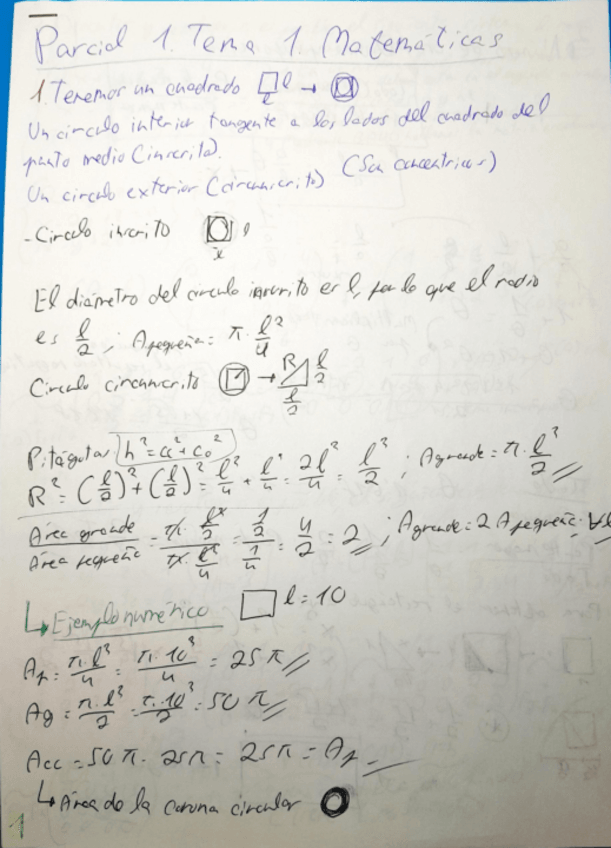 Parcial 1. Tema 1. Matemáticas
1. Tenemos un cuadrado l → l
Un circulo interior tangente a los lados del cuadrado del
punto medio (inscrito).
Un circulo exterior (circunscrito) (Son concentricos)
- Circulo inscrito l l
El diámetro del circulo inscrito es l, por lo que el radio
es l/2 ; Apequeña = π · l²/4
Circulo circunscrito → R l/2 l/2
Pitágoras h² = c² + c₀²
R² = (l/2)² + (l/2)² = l²/4 + l²/4 = 2l²/4 = l²/2 ; Agrande = π · l²/2
Área grande / Área pequeña = (π · l²/2) / (π · l²/4) = (1/2) / (1/4) = 4/2 = 2 ; Agrande = 2 Apequeña ∀l
↳ Ejemplo numérico l = 10
Ap = π · l²/4 = π · 10²/4 = 25 π
Ag = π · l²/2 = π · 10²/2 = 50 π
Acc = 50 π - 25π = 25π = Ap
↳ Área de la corona circular
1